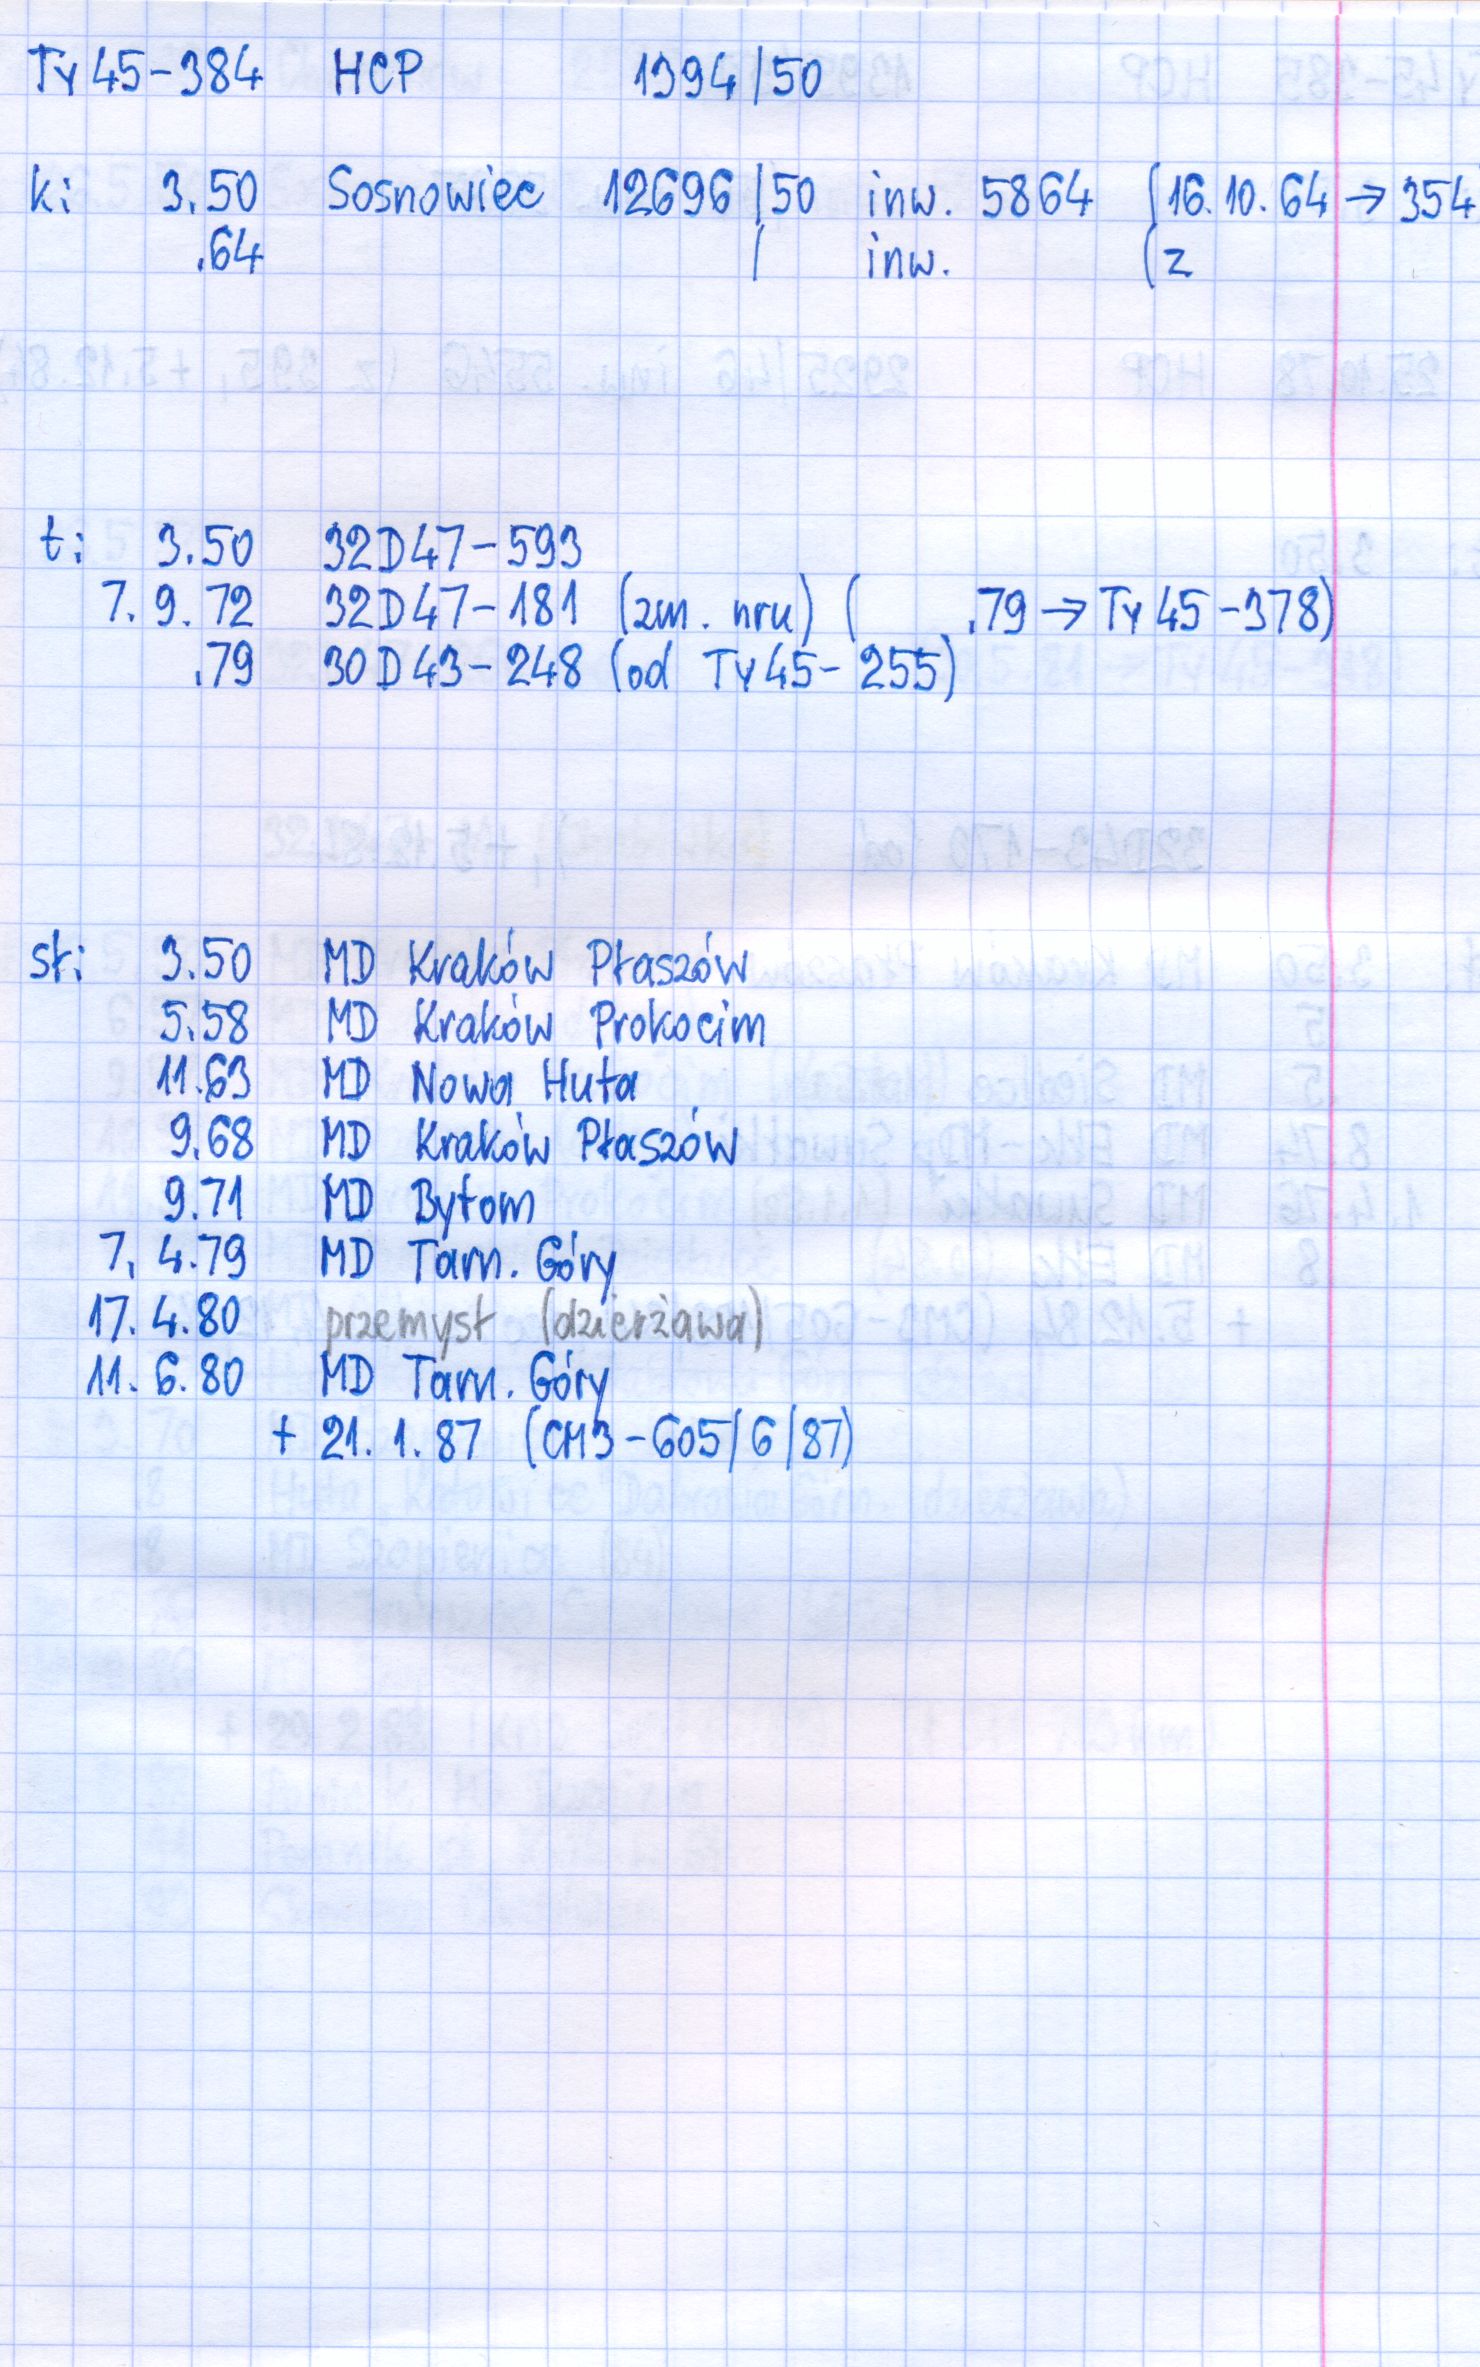 Ty45-384 HCP 1394/50
k: 3.50 Sosnowiec 12696/50 inw. 5864 (16.10.64 → 354
.64 / inw. (z
t: 3.50 32D47-593
7. 9. 72 32D47-181 (zm. nru) ( .79 → Ty45-378)
.79 30D43-248 (od Ty45-255)
sł: 3.50 MD Kraków Płaszów
5.58 MD Kraków Prokocim
11.63 MD Nowa Huta
9.68 MD Kraków Płaszów
9.71 MD Bytom
7. 4.79 MD Tarn. Góry
17. 4.80 przemysł (dzierżawa)
11. 6.80 MD Tarn. Góry
+ 21. 1. 87 (CM3-605/6/87)